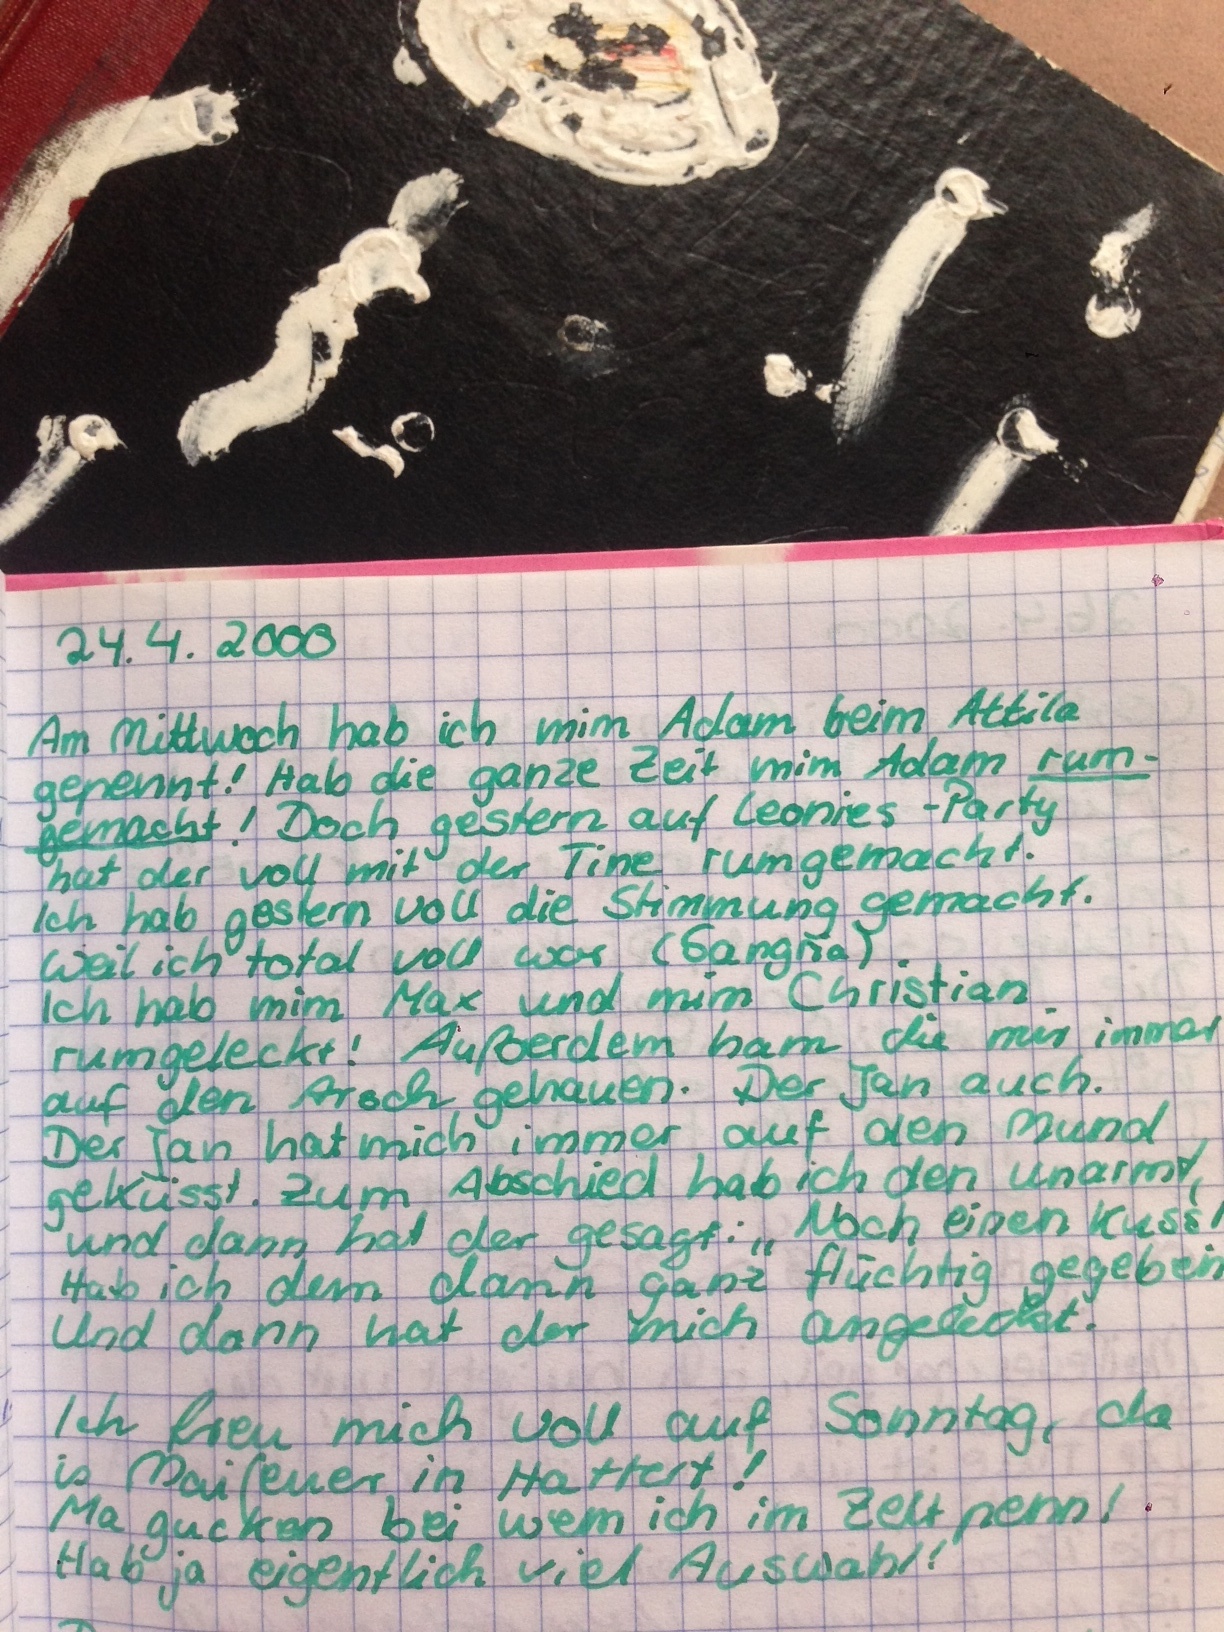 24.4.2000
Am Mittwoch hab ich mim Adam beim Attila
gepennt! Hab die ganze Zeit mim Adam rum-
gemacht! Doch gestern auf Leonies-Party
hat der voll mit der Tine rumgemacht.
Ich hab gestern voll die Stimmung gemacht.
Weil ich total voll war (Sangria).
Ich hab mim Max und mim Christian
rumgeleckt! Außerdem ham die mir immer
auf den Arsch gehauen. Der Jan auch.
Der Jan hat mich immer auf den Mund
geküsst. Zum Abschied hab ich den unarmt,
und dann hat der gesagt: „Noch einen Kuss!
Hab ich dem dann ganz flüchtig gegeben
Und dann hat der mich angeleckt.
Ich freu mich voll auf Sonntag, da
is Maifeuer in Hattert!
Ma gucken bei wem ich im Zelt penn!
Hab ja eigentlich viel Auswahl!